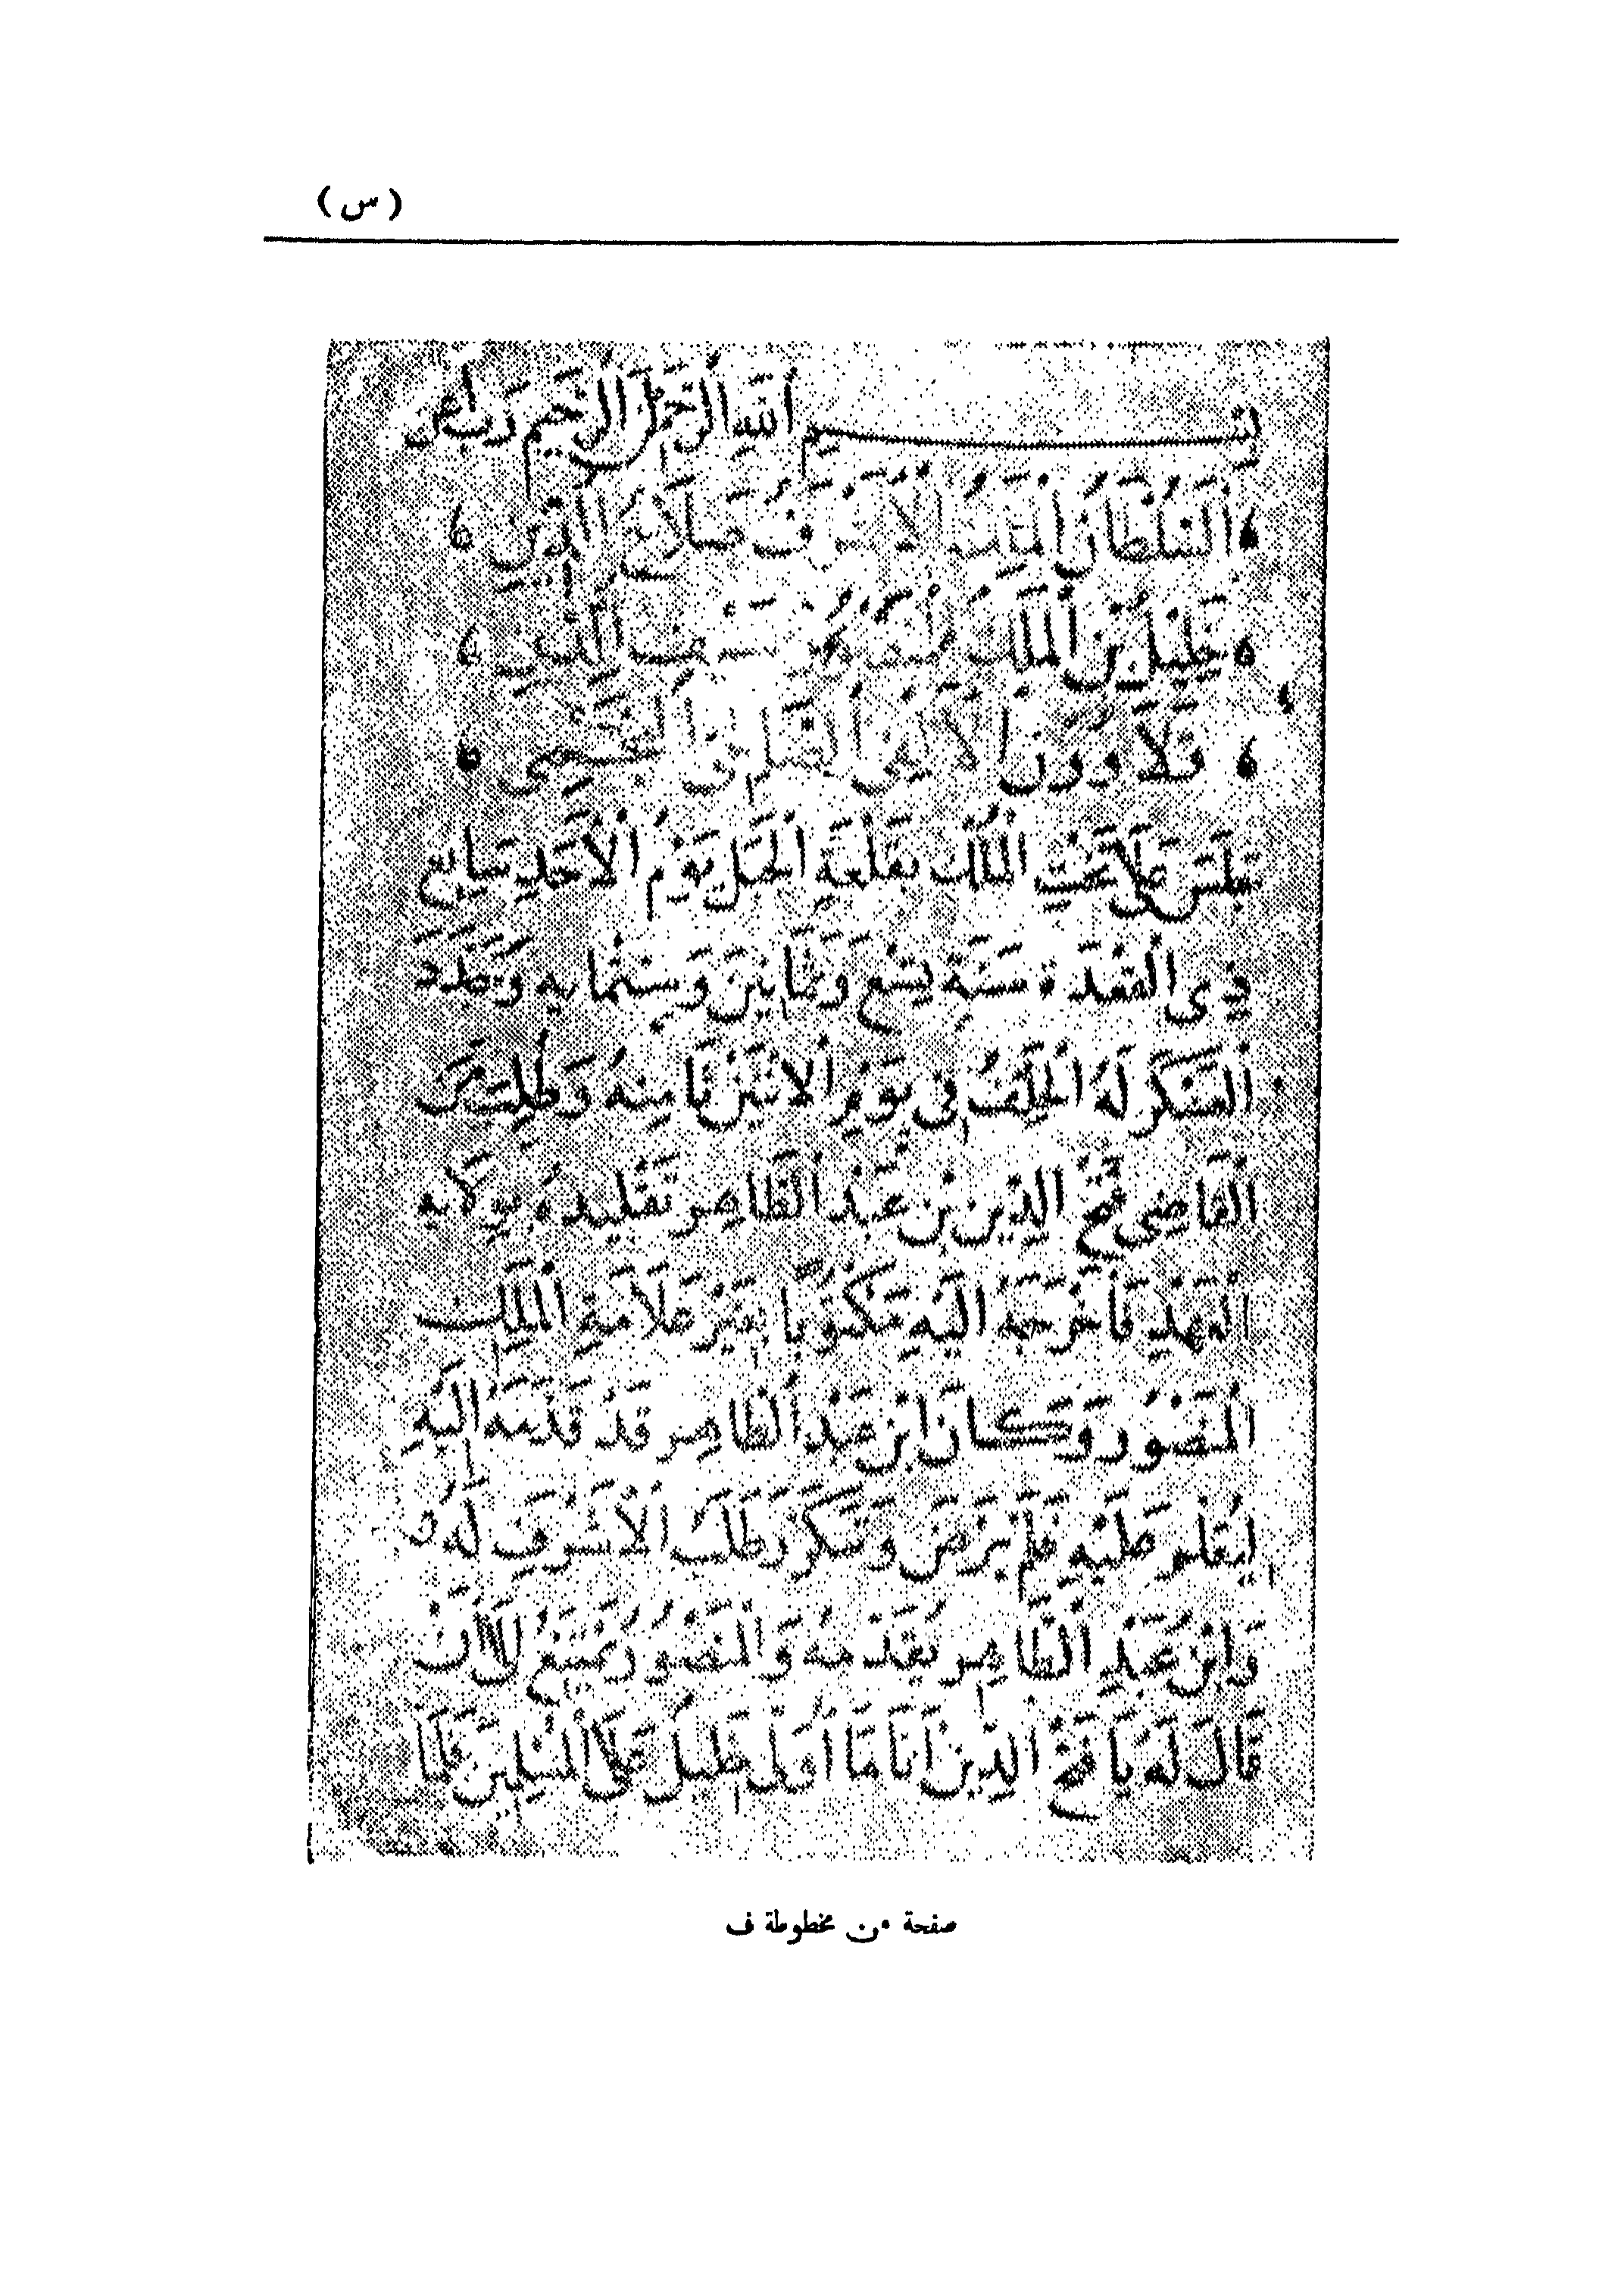 ( س )
بِسْمِ اللَّهِ الرَّحْمٰنِ الرَّحِيمِ رَبِّ أَعِن
السُّلْطَانُ الْمَلِكُ الْأَشْرَفُ صَلَاحُ الدِّينِ
خَلِيلُ بْنُ الْمَلِكِ الْمَنْصُورِ سَيْفِ الدِّينِ
قَلَاوُونَ الْأَلْفِي الصَّالِحِي النَّجْمِي
جَلَسَ عَلَى تَخْتِ الْمُلْكِ بِقَلْعَةِ الْجَبَلِ يَوْمَ الْأَحَدِ سَابِع
ذِي الْقَعْدَةِ سَنَةَ تِسْعٍ وَثَمَانِينَ وَسِتِّمَايِهِ وَجَدَّدَ
الْعَسْكَرُ لَهُ الْحَلْفَ فِي يَوْمِ الِاثْنَيْنِ ثَامِنِهِ وَطَلَبَ مِنَ
الْقَاضِي فَتْحِ الدِّينِ بْنِ عَبْدِ الظَّاهِرِ تَقْلِيدَهُ بِوِلَايَةِ
الْعَهْدِ فَأَخْرَجَهُ إِلَيْهِ مَكْتُوبًا بِغَيْرِ عَلَامَةِ الْمَلِكِ
الْمَنْصُورِ وَكَانَ ابْنُ عَبْدِ الظَّاهِرِ قَدْ قَدَّمَهُ إِلَيْهِ
لِيُعَلِّمَ عَلَيْهِ فَلَمْ يَرْضَ وَتَكَرَّرَ طَلَبُ الْأَشْرَفِ لَهُ
وَابْنُ عَبْدِ الظَّاهِرِ يُقَدِّمُهُ وَالْمَنْصُورُ يَمْتَنِعُ إِلَى أَنْ
قَالَ لَهُ يَا فَتْحَ الدِّينِ أَنَا مَا أُوَلِّي خَلِيلَ عَلَى الْمُسْلِمِينَ فَلَمَّا
صفحة من مخطوطة ف